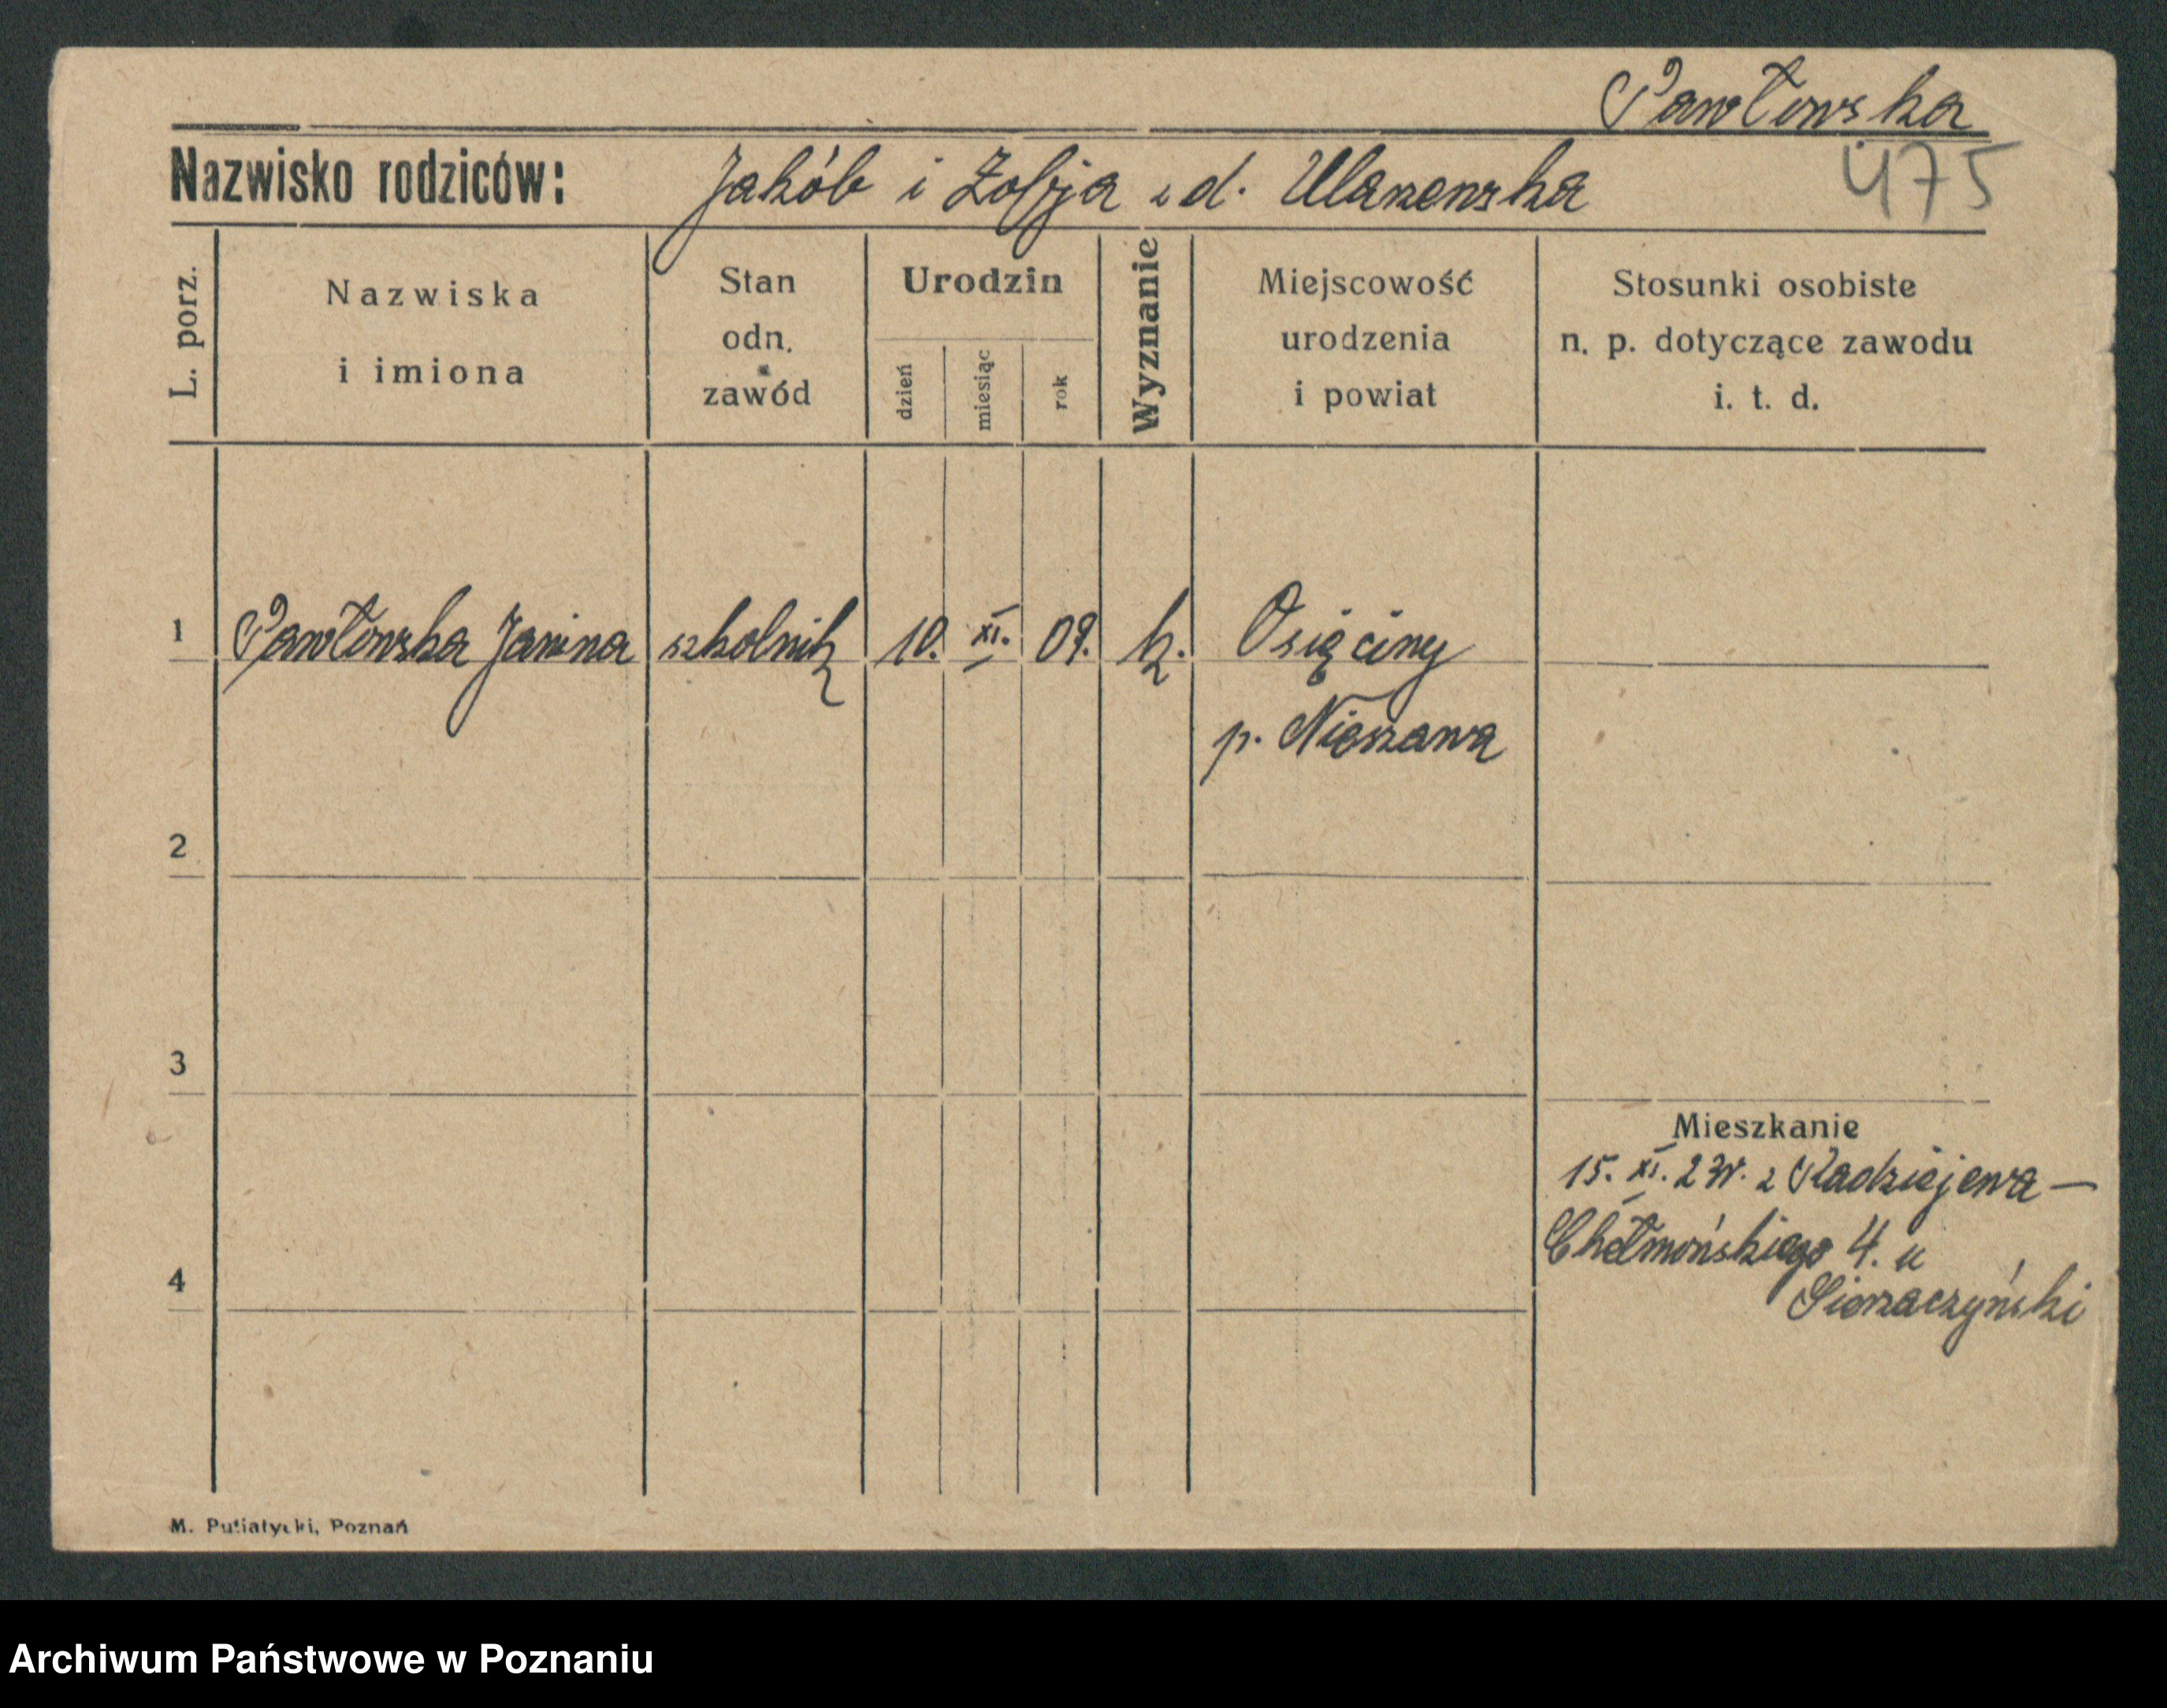 Pawłowska
475
Nazwisko rodziców: Jakób i Zofja z d.
L. porz.
Nazwiska
i imiona
Stan
odn.
zawód
Urodzin
dzień
miesiąc
rok
Wyznanie
Miejscowość
urodzenia
i powiat
Stosunki osobiste
n. p. dotyczące zawodu
i. t. d.
1 Pawłowska Janina szkolnik 10. XI. 09. k. Osięciny
p. Nieszawa
2
3
Mieszkanie
15. XI. z Radziejewa —
Chełmońskiego 4. u
4
M. Putiatycki, Poznań
Archiwum Państwowe w Poznaniu